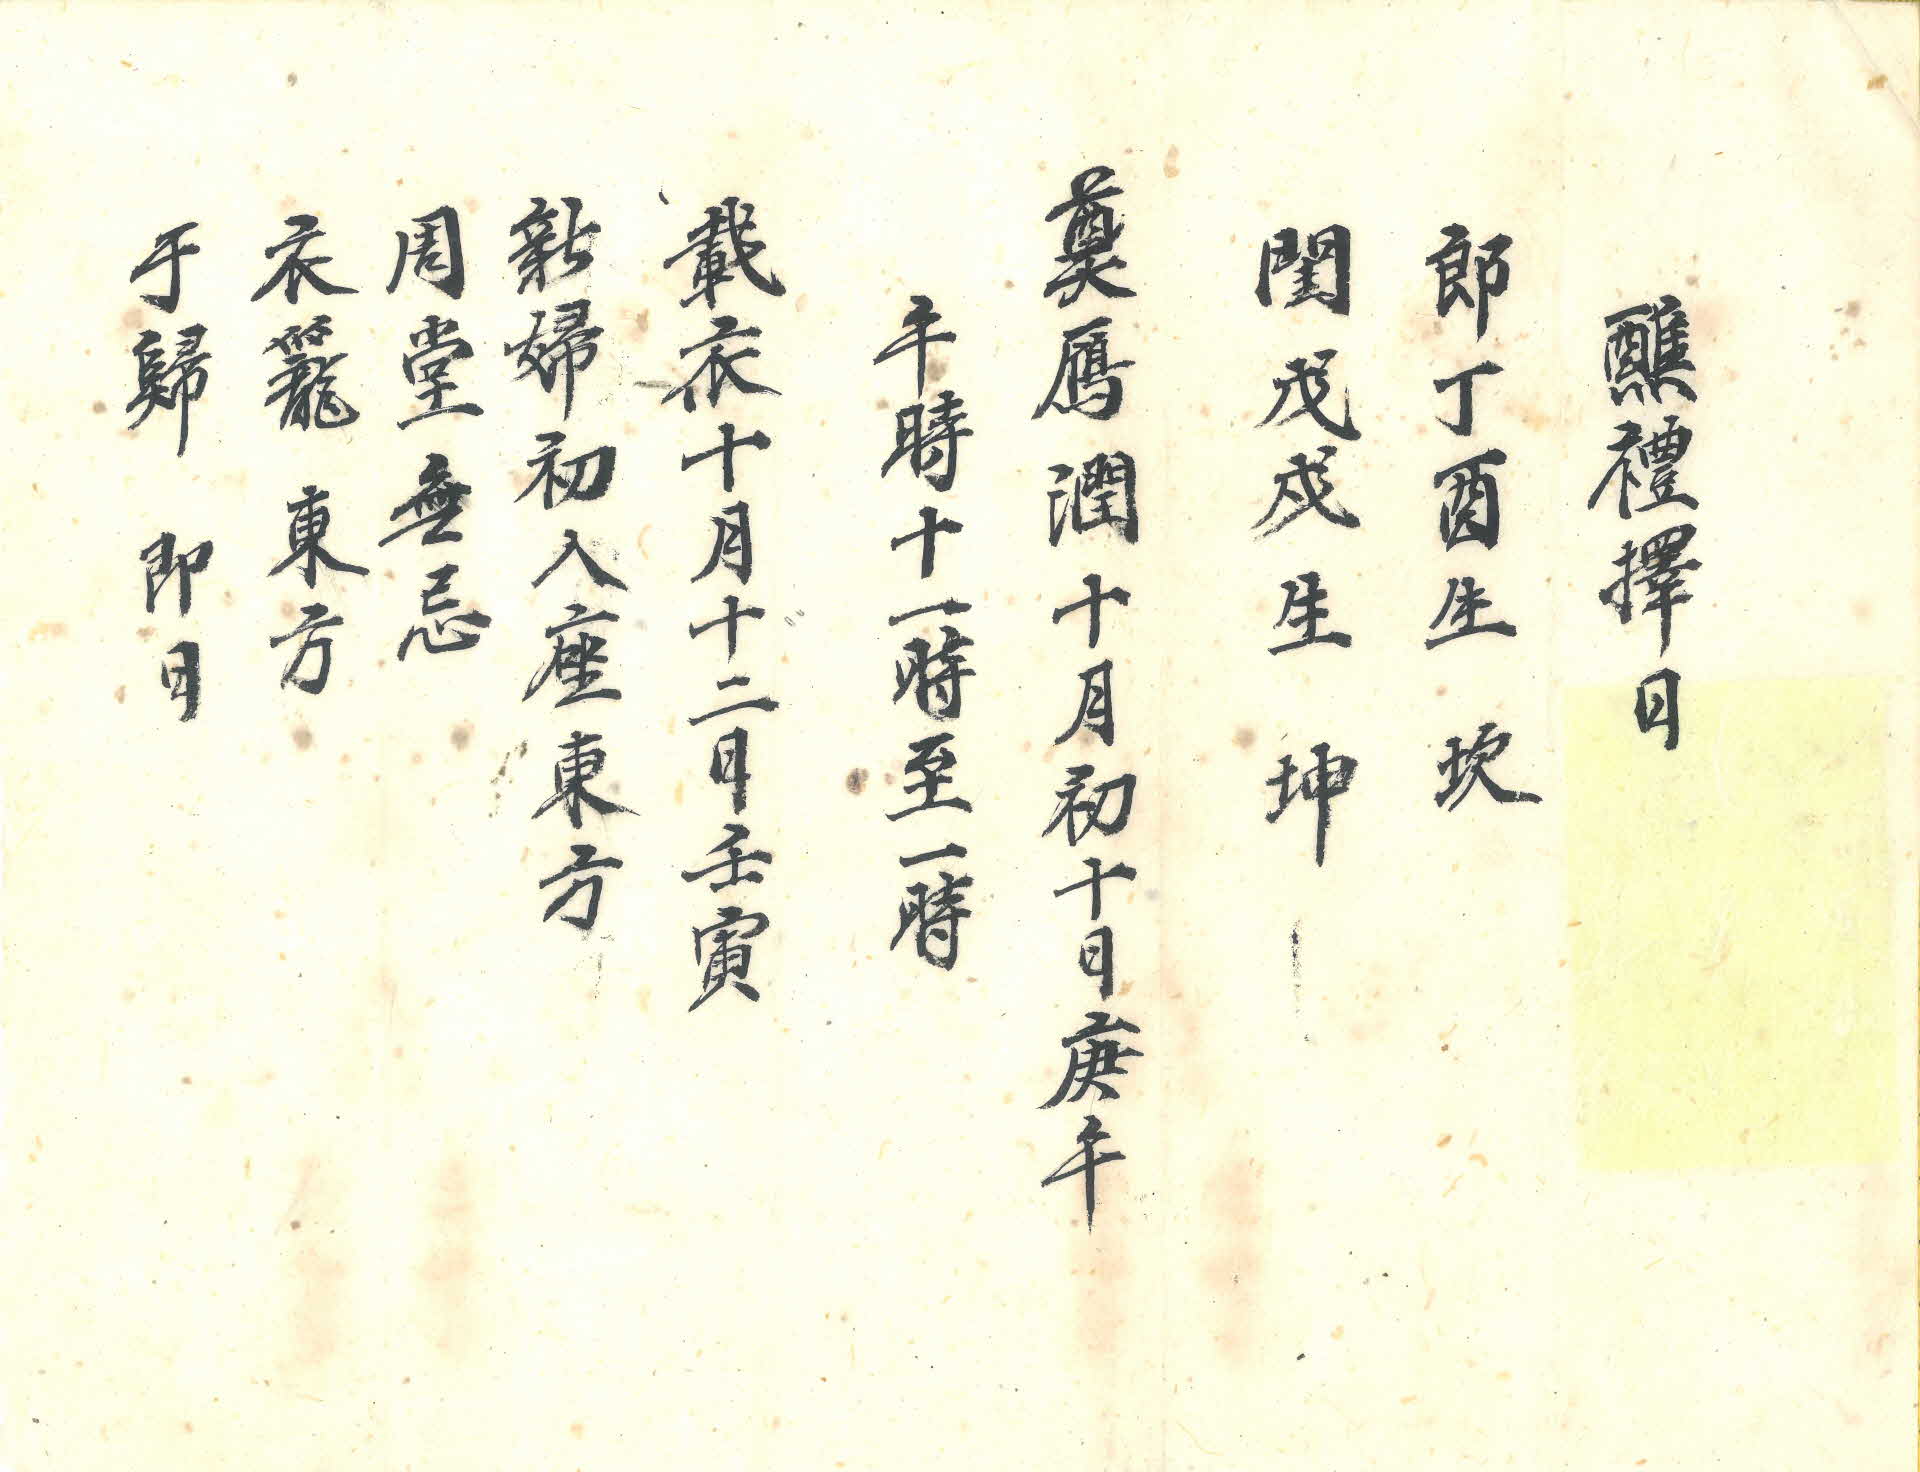 醮禮擇日
郎丁酉生 坎
閨戊戌生 坤
奠鴈 潤十月初十日庚午
午時十一時至一時
載衣十月十二日壬寅
新婦初入座東方
周堂無忌
衣籠 東方
于歸 即日